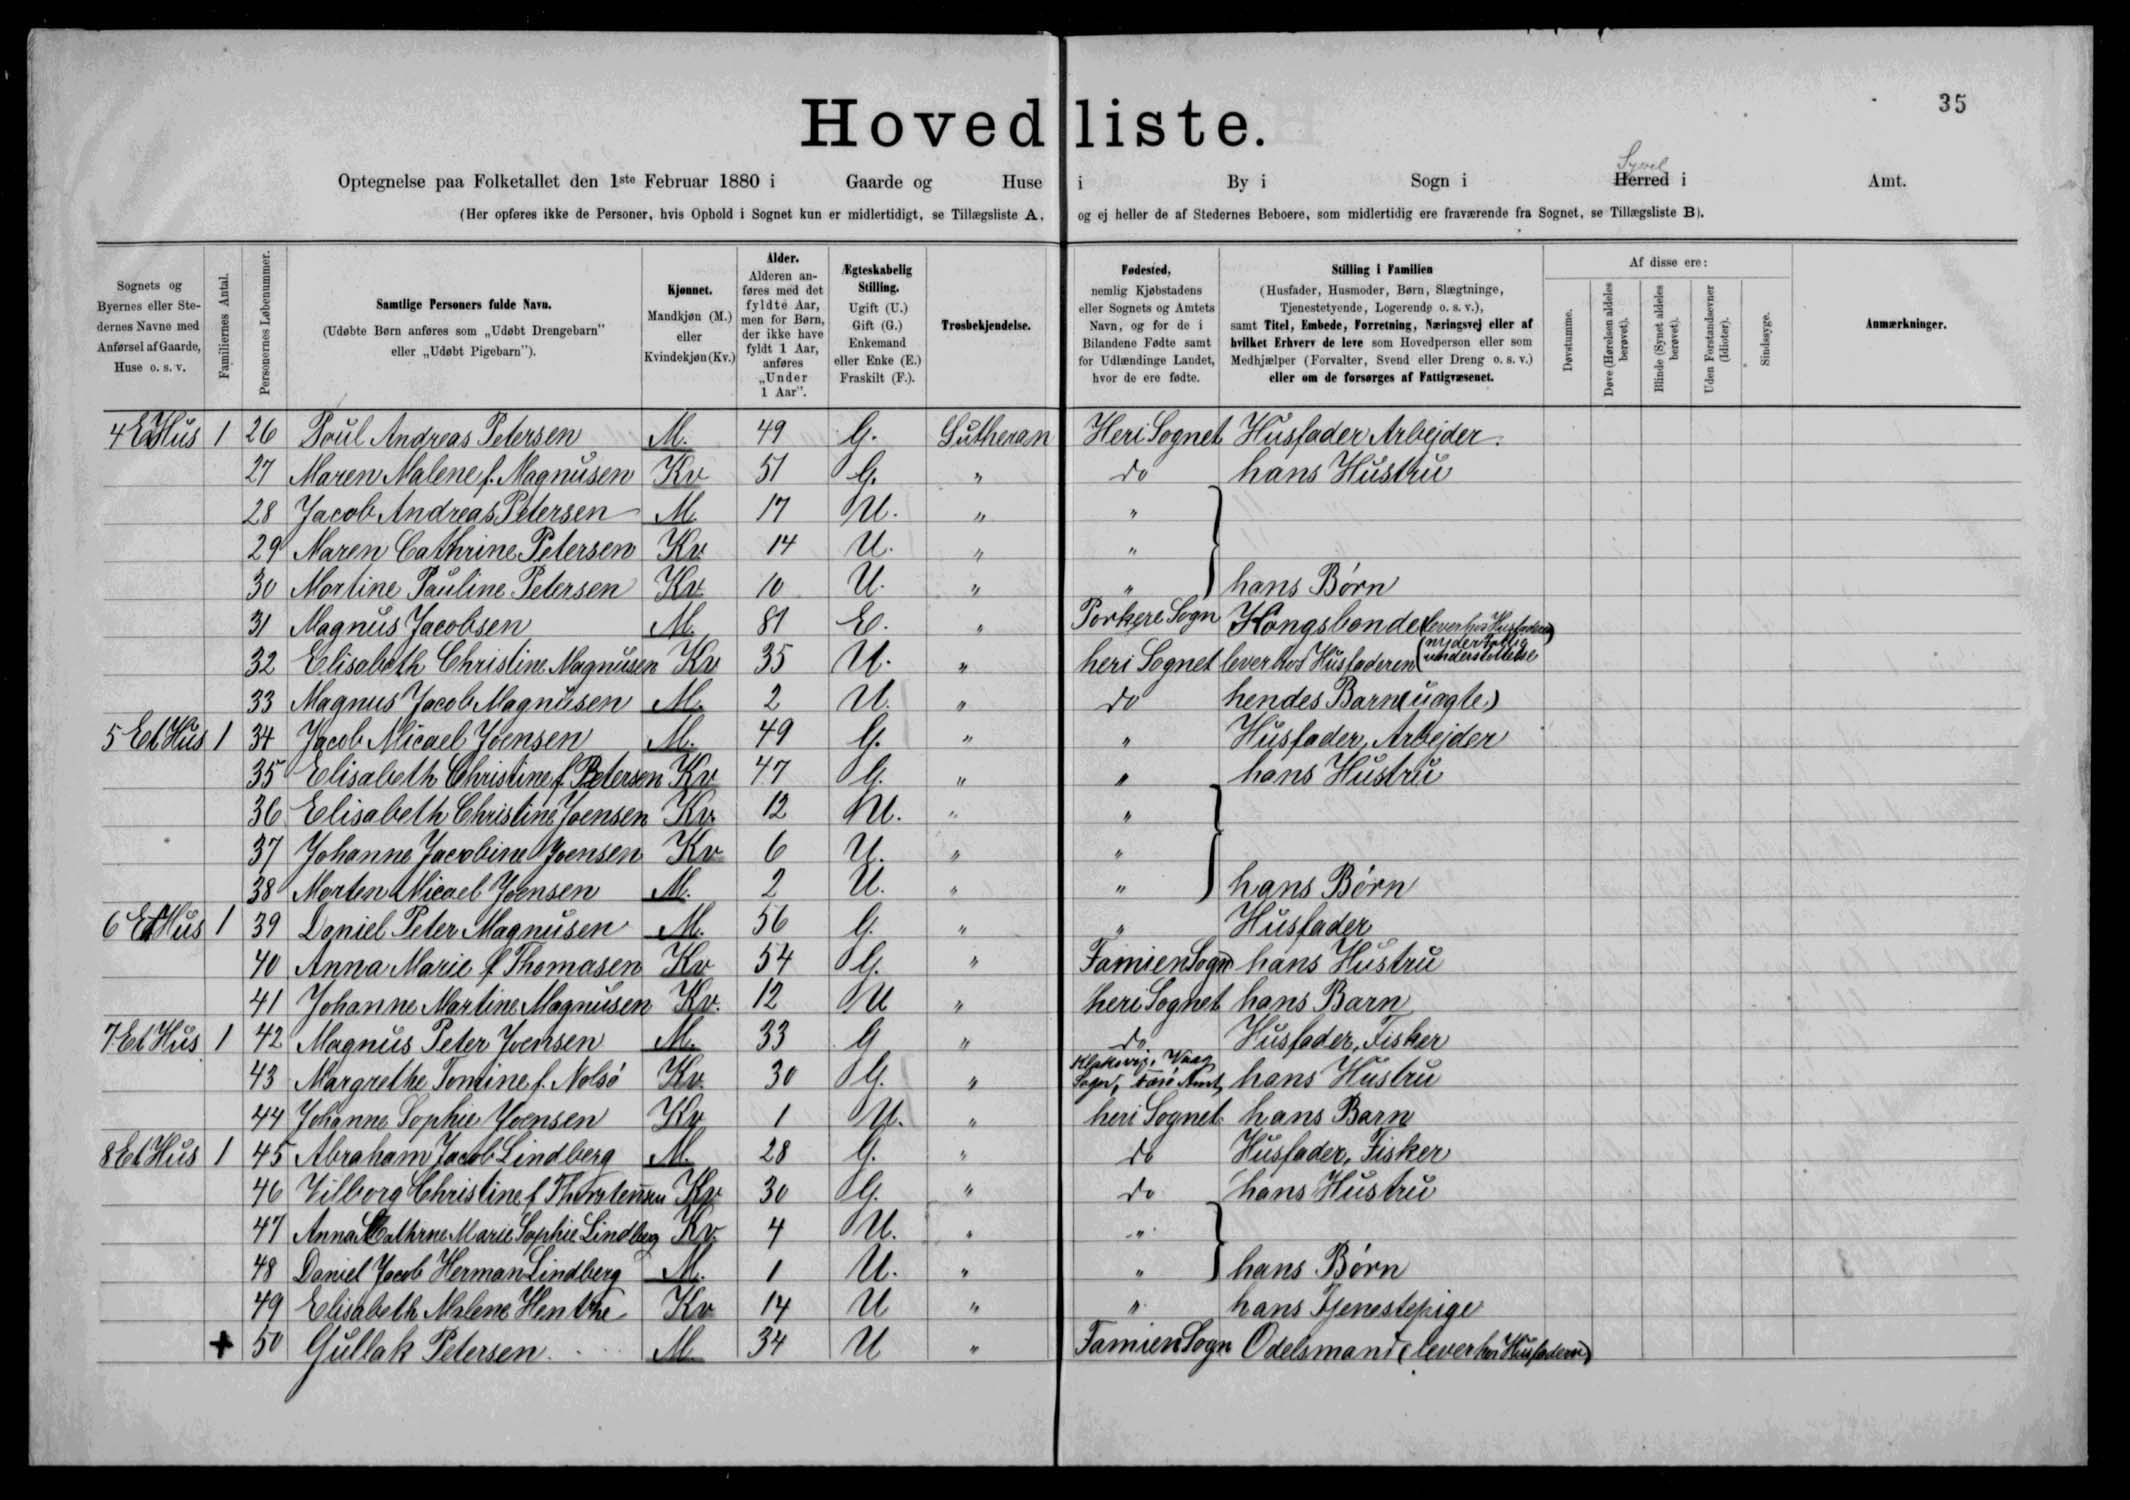 35
Hovedliste.
Syssel
Optegnelse paa Folketallet den 1ste Februar 1880 i Gaarde og Huse i By i Sogn i Herred i Amt.
(Her opføres ikke de Personer, hvis Ophold i Sognet kun er midlertidigt, se Tillægsliste A, og ej heller de af Stedernes Beboere, som midlertidig ere fraværende fra Sognet, se Tillægsliste B).
Sognets og Byernes eller Stedernes Navne med Anførsel af Gaarde, Huse o. s. v.
Familiernes Antal.
Personernes Løbenummer.
Samtlige Personers fulde Navn.
(Udøbte Børn anføres som „Udøbt Drengebarn" eller „Udøbt Pigebarn").
Kjønnet.
Mandkjøn (M.) eller Kvindekjøn (Kv.)
Alder.
Alderen anføres med det fyldte Aar, men for Børn, der ikke have fyldt 1 Aar, anføres „Under 1 Aar".
Ægteskabelig Stilling.
Ugift (U.) Gift (G.) Enkemand eller Enke (E.) Fraskilt (F.).
Trosbekjendelse.
Fødested,
nemlig Kjøbstadens eller Sognets og Amtets Navn, og for de i Bilandene Fødte samt for Udlændinge Landet, hvor de ere fødte.
Stilling i Familien
(Husfader, Husmoder, Børn, Slægtninge, Tjenestetyende, Logerende o. s. v.),
samt Titel, Embede, Forretning, Næringsvej eller af hvilket Erhverv de leve som Hovedperson eller som Medhjælper (Forvalter, Svend eller Dreng o. s. v.) eller om de forsørges af Fattigvæsenet.
Af disse ere:
Døvstumme.
Døve (Hørelsen aldeles berøvet).
Blinde (Synet aldeles berøvet).
Uden Forstandsevner (Idioter).
Sindssyge.
Anmærkninger.
4 Et Hus 1 26 Poul Andreas Petersen M. 49 G. Lutheran Heri Sognet Husfader Arbejder.
27 Maren Malene f. Magnusen Kv 51 G. " do hans Hustru
28 Jacob Andreas Petersen M. 17 U. " "
29 Maren Cathrine Petersen Kv 14 U. " "
30 Mortine Pauline Petersen Kv 10 U. " " hans Børn
31 Magnus Jacobsen M. 81 E. " Porkere Sogn Kongsbonde (lever hos Husfaderen)
32 Elisabeth Christine Magnusen Kv 35 U. " heri Sognet lever hos Husfaderen (nyder Fattig understøttelse
33 Magnus Jacob Magnusen M. 2 U. " do hendes Barn (uægte)
5 Et Hus 1 34 Jacob Micael Joensen M. 49 G. " " Husfader, Arbejder
35 Elisabeth Christine f Petersen Kv 47 G. " " hans Hustru
36 Elisabeth Christine Joensen Kv 12 U. " "
37 Johanne Jacobine Joensen Kv 6 U. " "
38 Morten Micael Joensen M. 2 U. " " hans Børn
6 Et Hus 1 39 Daniel Peter Magnusen M. 56 G. " " Husfader
40 Anna Marie f Thomasen Kv 54 G. " Famien Sogn hans Hustru
41 Johanne Martine Magnusen Kv. 12 U " heri Sognet hans Barn
7 Et Hus 1 42 Magnus Peter Joensen M. 33 G " do Husfader, Fisker
43 Margrethe Tomine f. Nolsö Kv. 30 G. " Klaksvig, Waag Sogn, Færø Amt, hans Hustru
44 Johanne Sophie Joensen Kv 1 U. " heri Sognet hans Barn
8 Et Hus 1 45 Abraham Jacob Lindberg M. 28 G. " do Husfader, Fisker
46 Vilborg Christine f Thorstensen Kv 30 G. " do hans Hustru
47 Anna Cathrine Marie Sophie Lindberg Kv. 4 U. " "
48 Daniel Jacob Herman Lindberg M. 1 U. " " hans Børn
49 Elisabeth Malene Henthe Kv 14 U " " hans Tjenestepige
+ 50 Gullak Petersen M 34 U " Famien Sogn Odelsmand (lever hos Husfaderen)